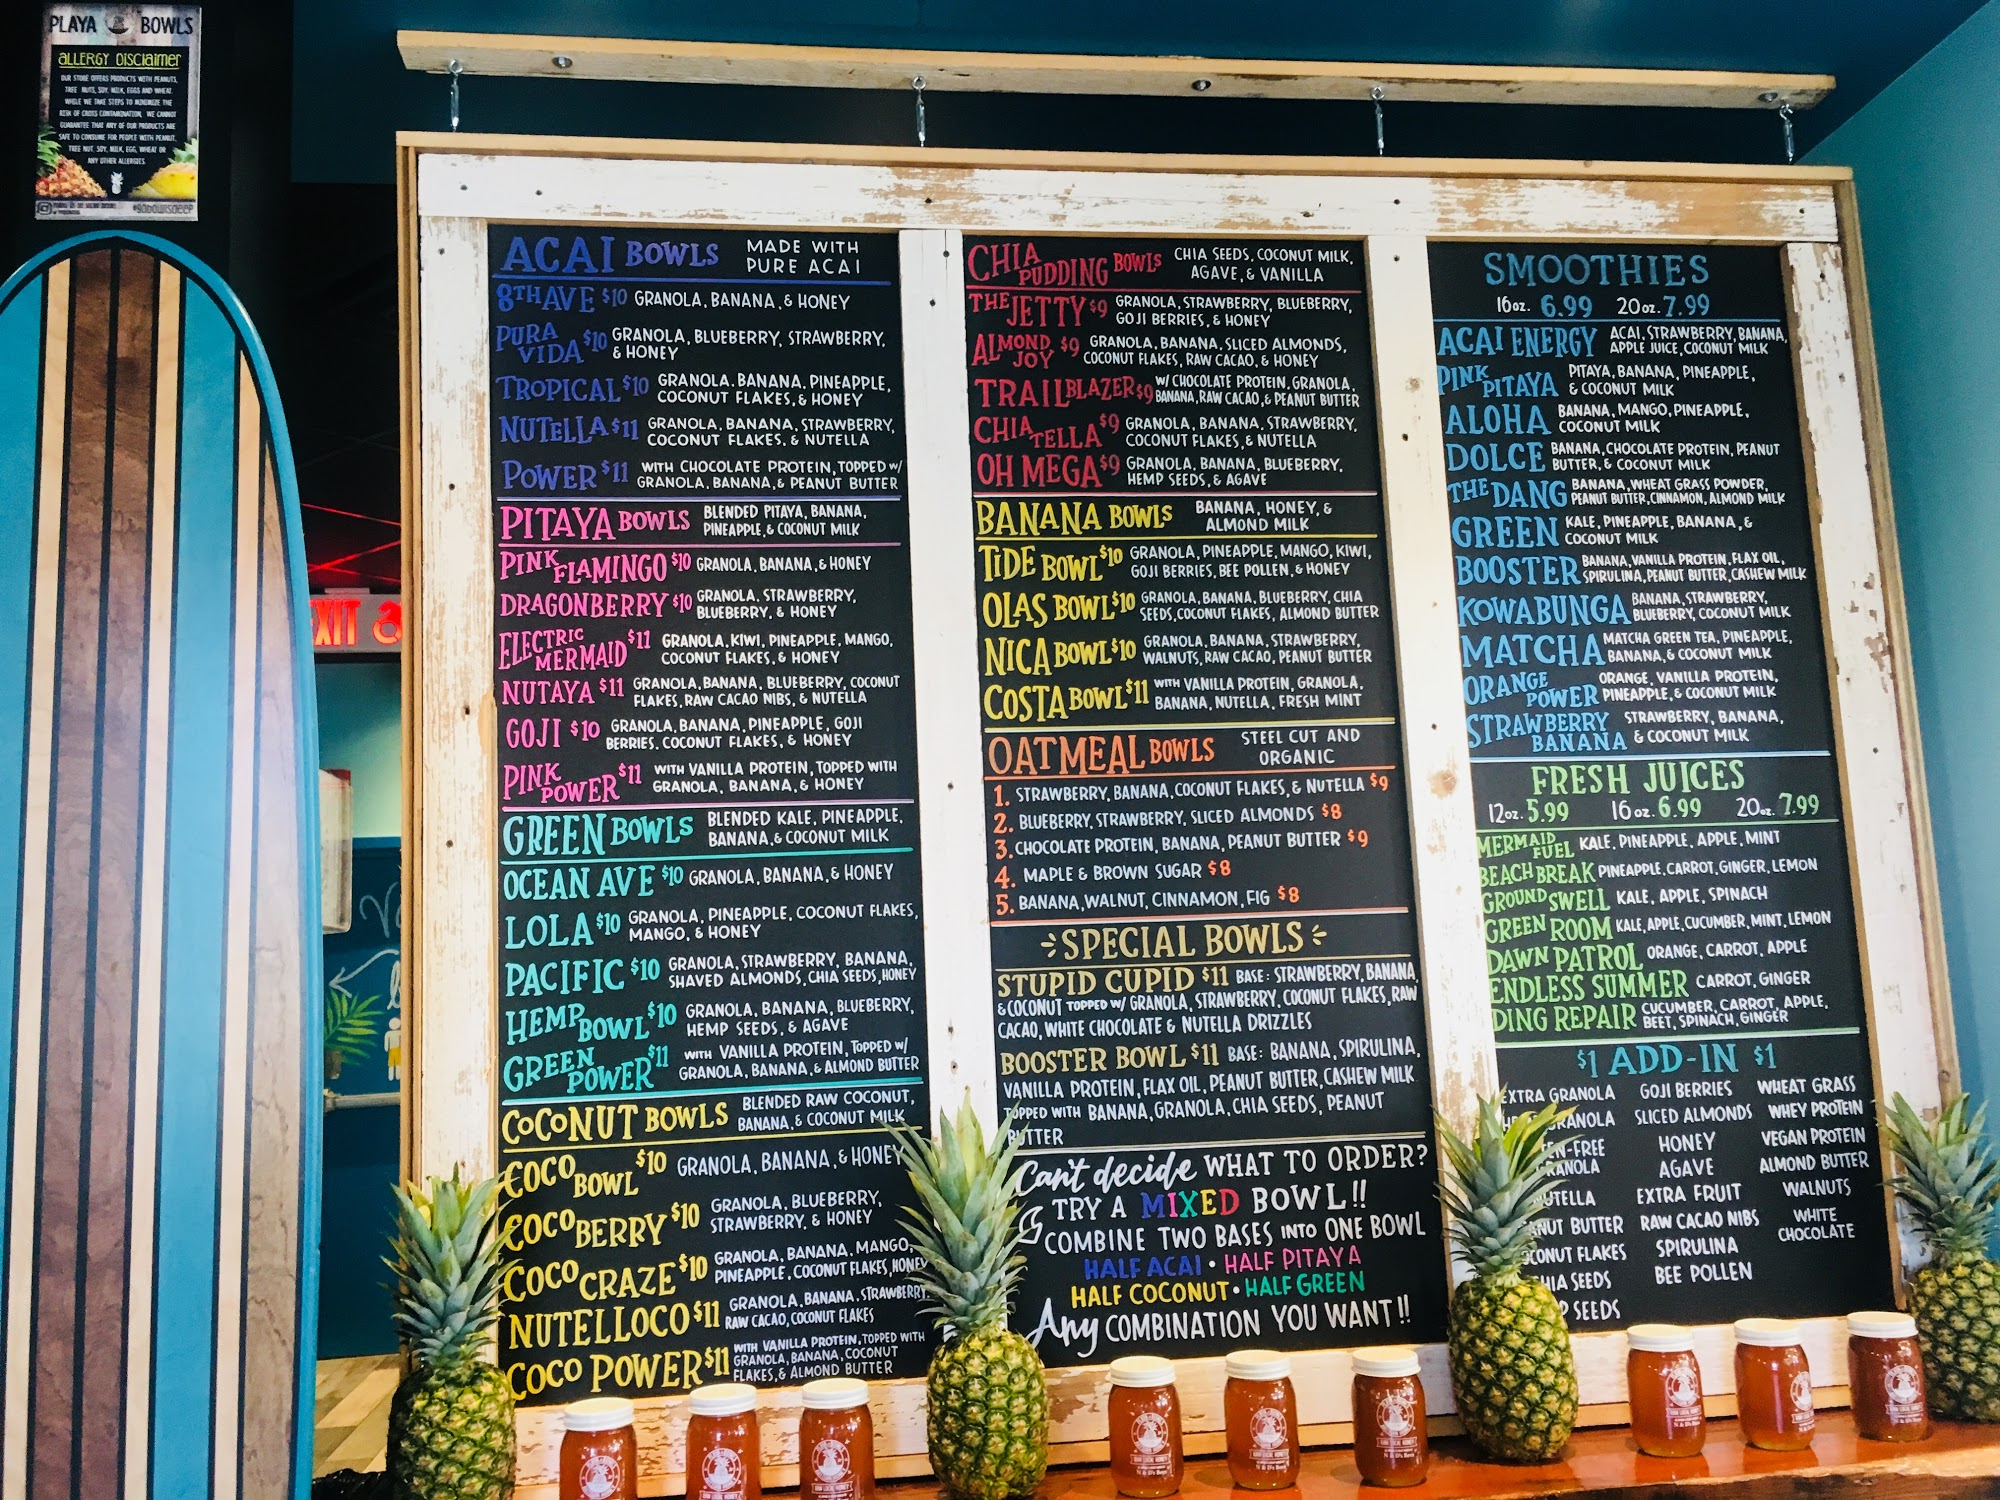 PLAYA BOWLS
ALLERGY DISCLAIMER
OUR STORE OFFERS PRODUCTS WITH PEANUTS,
TREE NUTS, SOY, MILK, EGGS AND WHEAT.
WHILE WE TAKE STEPS TO MINIMIZE THE
RISK OF CROSS CONTAMINATION, WE CANNOT
GUARANTEE THAT ANY OF OUR PRODUCTS ARE
SAFE TO CONSUME FOR PEOPLE WITH PEANUT,
TREE NUT, SOY, MILK, EGG, WHEAT OR
ANY OTHER ALLERGIES.
#GOBOWLSDEEP
EXIT
ACAI BOWLS MADE WITH
PURE ACAI
8TH AVE $10 GRANOLA, BANANA, & HONEY
PURA VIDA $10 GRANOLA, BLUEBERRY, STRAWBERRY,
& HONEY
TROPICAL $10 GRANOLA, BANANA, PINEAPPLE,
COCONUT FLAKES, & HONEY
NUTELLA $11 GRANOLA, BANANA, STRAWBERRY,
COCONUT FLAKES, & NUTELLA
POWER $11 WITH CHOCOLATE PROTEIN, TOPPED W/
GRANOLA, BANANA, & PEANUT BUTTER
PITAYA BOWLS BLENDED PITAYA, BANANA,
PINEAPPLE, & COCONUT MILK
PINK FLAMINGO $10 GRANOLA, BANANA, & HONEY
DRAGONBERRY $10 GRANOLA, STRAWBERRY,
BLUEBERRY, & HONEY
ELECTRIC MERMAID $11 GRANOLA, KIWI, PINEAPPLE, MANGO,
COCONUT FLAKES, & HONEY
NUTAYA $11 GRANOLA, BANANA, BLUEBERRY, COCONUT
FLAKES, RAW CACAO NIBS, & NUTELLA
GOJI $10 GRANOLA, BANANA, PINEAPPLE, GOJI
BERRIES, COCONUT FLAKES, & HONEY
PINK POWER $11 WITH VANILLA PROTEIN, TOPPED WITH
GRANOLA, BANANA, & HONEY
GREEN BOWLS BLENDED KALE, PINEAPPLE,
BANANA, & COCONUT MILK
OCEAN AVE $10 GRANOLA, BANANA, & HONEY
LOLA $10 GRANOLA, PINEAPPLE, COCONUT FLAKES,
MANGO, & HONEY
PACIFIC $10 GRANOLA, STRAWBERRY, BANANA,
SHAVED ALMONDS, CHIA SEEDS, HONEY
HEMP BOWL $10 GRANOLA, BANANA, BLUEBERRY,
HEMP SEEDS, & AGAVE
GREEN POWER $11 WITH VANILLA PROTEIN, TOPPED W/
GRANOLA, BANANA, & ALMOND BUTTER
COCONUT BOWLS BLENDED RAW COCONUT,
BANANA, & COCONUT MILK
COCO BOWL $10 GRANOLA, BANANA, & HONEY
COCO BERRY $10 GRANOLA, BLUEBERRY,
STRAWBERRY, & HONEY
COCO CRAZE $10 GRANOLA, BANANA, MANGO,
PINEAPPLE, COCONUT FLAKES, HONEY
NUTELLOCO $11 GRANOLA, BANANA, STRAWBERRY,
RAW CACAO, COCONUT FLAKES
COCO POWER $11 WITH VANILLA PROTEIN, TOPPED WITH
GRANOLA, BANANA, COCONUT
FLAKES, & ALMOND BUTTER
CHIA PUDDING BOWLS CHIA SEEDS, COCONUT MILK,
AGAVE, & VANILLA
THE JETTY $9 GRANOLA, STRAWBERRY, BLUEBERRY,
GOJI BERRIES, & HONEY
ALMOND JOY $9 GRANOLA, BANANA, SLICED ALMONDS,
COCONUT FLAKES, RAW CACAO, & HONEY
TRAILBLAZER $9 W/ CHOCOLATE PROTEIN, GRANOLA,
BANANA, RAW CACAO, & PEANUT BUTTER
CHIA TELLA $9 GRANOLA, BANANA, STRAWBERRY,
COCONUT FLAKES, & NUTELLA
OH MEGA $9 GRANOLA, BANANA, BLUEBERRY,
HEMP SEEDS, & AGAVE
BANANA BOWLS BANANA, HONEY, &
ALMOND MILK
TIDE BOWL $10 GRANOLA, PINEAPPLE, MANGO, KIWI,
GOJI BERRIES, BEE POLLEN, & HONEY
OLAS BOWL $10 GRANOLA, BANANA, BLUEBERRY, CHIA
SEEDS, COCONUT FLAKES, ALMOND BUTTER
NICA BOWL $10 GRANOLA, BANANA, STRAWBERRY,
WALNUTS, RAW CACAO, PEANUT BUTTER
COSTA BOWL $11 WITH VANILLA PROTEIN, GRANOLA,
BANANA, NUTELLA, FRESH MINT
OATMEAL BOWLS STEEL CUT AND
ORGANIC
1. STRAWBERRY, BANANA, COCONUT FLAKES, & NUTELLA $9
2. BLUEBERRY, STRAWBERRY, SLICED ALMONDS $8
3. CHOCOLATE PROTEIN, BANANA, PEANUT BUTTER $9
4. MAPLE & BROWN SUGAR $8
5. BANANA, WALNUT, CINNAMON, FIG $8
SPECIAL BOWLS
STUPID CUPID $11 BASE: STRAWBERRY, BANANA,
& COCONUT TOPPED W/ GRANOLA, STRAWBERRY, COCONUT FLAKES, RAW
CACAO, WHITE CHOCOLATE & NUTELLA DRIZZLES
BOOSTER BOWL $11 BASE: BANANA, SPIRULINA,
VANILLA PROTEIN, FLAX OIL, PEANUT BUTTER, CASHEW MILK
TOPPED WITH BANANA, GRANOLA, CHIA SEEDS, PEANUT
BUTTER
Can't decide WHAT TO ORDER?
TRY A MIXED BOWL!!
COMBINE TWO BASES INTO ONE BOWL
HALF ACAI • HALF PITAYA
HALF COCONUT • HALF GREEN
Any COMBINATION YOU WANT!!
SMOOTHIES
16oz. 6.99 20oz. 7.99
ACAI ENERGY ACAI, STRAWBERRY, BANANA,
APPLE JUICE, COCONUT MILK
PINK PITAYA PITAYA, BANANA, PINEAPPLE,
& COCONUT MILK
ALOHA BANANA, MANGO, PINEAPPLE,
COCONUT MILK
DOLCE BANANA, CHOCOLATE PROTEIN, PEANUT
BUTTER, & COCONUT MILK
THE DANG BANANA, WHEAT GRASS POWDER,
PEANUT BUTTER, CINNAMON, ALMOND MILK
GREEN KALE, PINEAPPLE, BANANA, &
COCONUT MILK
BOOSTER BANANA, VANILLA PROTEIN, FLAX OIL,
SPIRULINA, PEANUT BUTTER, CASHEW MILK
KOWABUNGA BANANA, STRAWBERRY,
BLUEBERRY, COCONUT MILK
MATCHA MATCHA GREEN TEA, PINEAPPLE,
BANANA, & COCONUT MILK
ORANGE POWER ORANGE, VANILLA PROTEIN,
PINEAPPLE, & COCONUT MILK
STRAWBERRY BANANA STRAWBERRY, BANANA,
& COCONUT MILK
FRESH JUICES
12oz. 5.99 16oz. 6.99 20oz. 7.99
MERMAID FUEL KALE, PINEAPPLE, APPLE, MINT
BEACH BREAK PINEAPPLE, CARROT, GINGER, LEMON
GROUND SWELL KALE, APPLE, SPINACH
GREEN ROOM KALE, APPLE, CUCUMBER, MINT, LEMON
DAWN PATROL ORANGE, CARROT, APPLE
ENDLESS SUMMER CARROT, GINGER
DING REPAIR CUCUMBER, CARROT, APPLE,
BEET, SPINACH, GINGER
$1 ADD-IN $1
EXTRA GRANOLA GOJI BERRIES WHEAT GRASS
GRANOLA SLICED ALMONDS WHEY PROTEIN
FREE GRANOLA HONEY VEGAN PROTEIN
AGAVE ALMOND BUTTER
NUTELLA EXTRA FRUIT WALNUTS
PEANUT BUTTER RAW CACAO NIBS WHITE CHOCOLATE
COCONUT FLAKES SPIRULINA
CHIA SEEDS BEE POLLEN
SEEDS